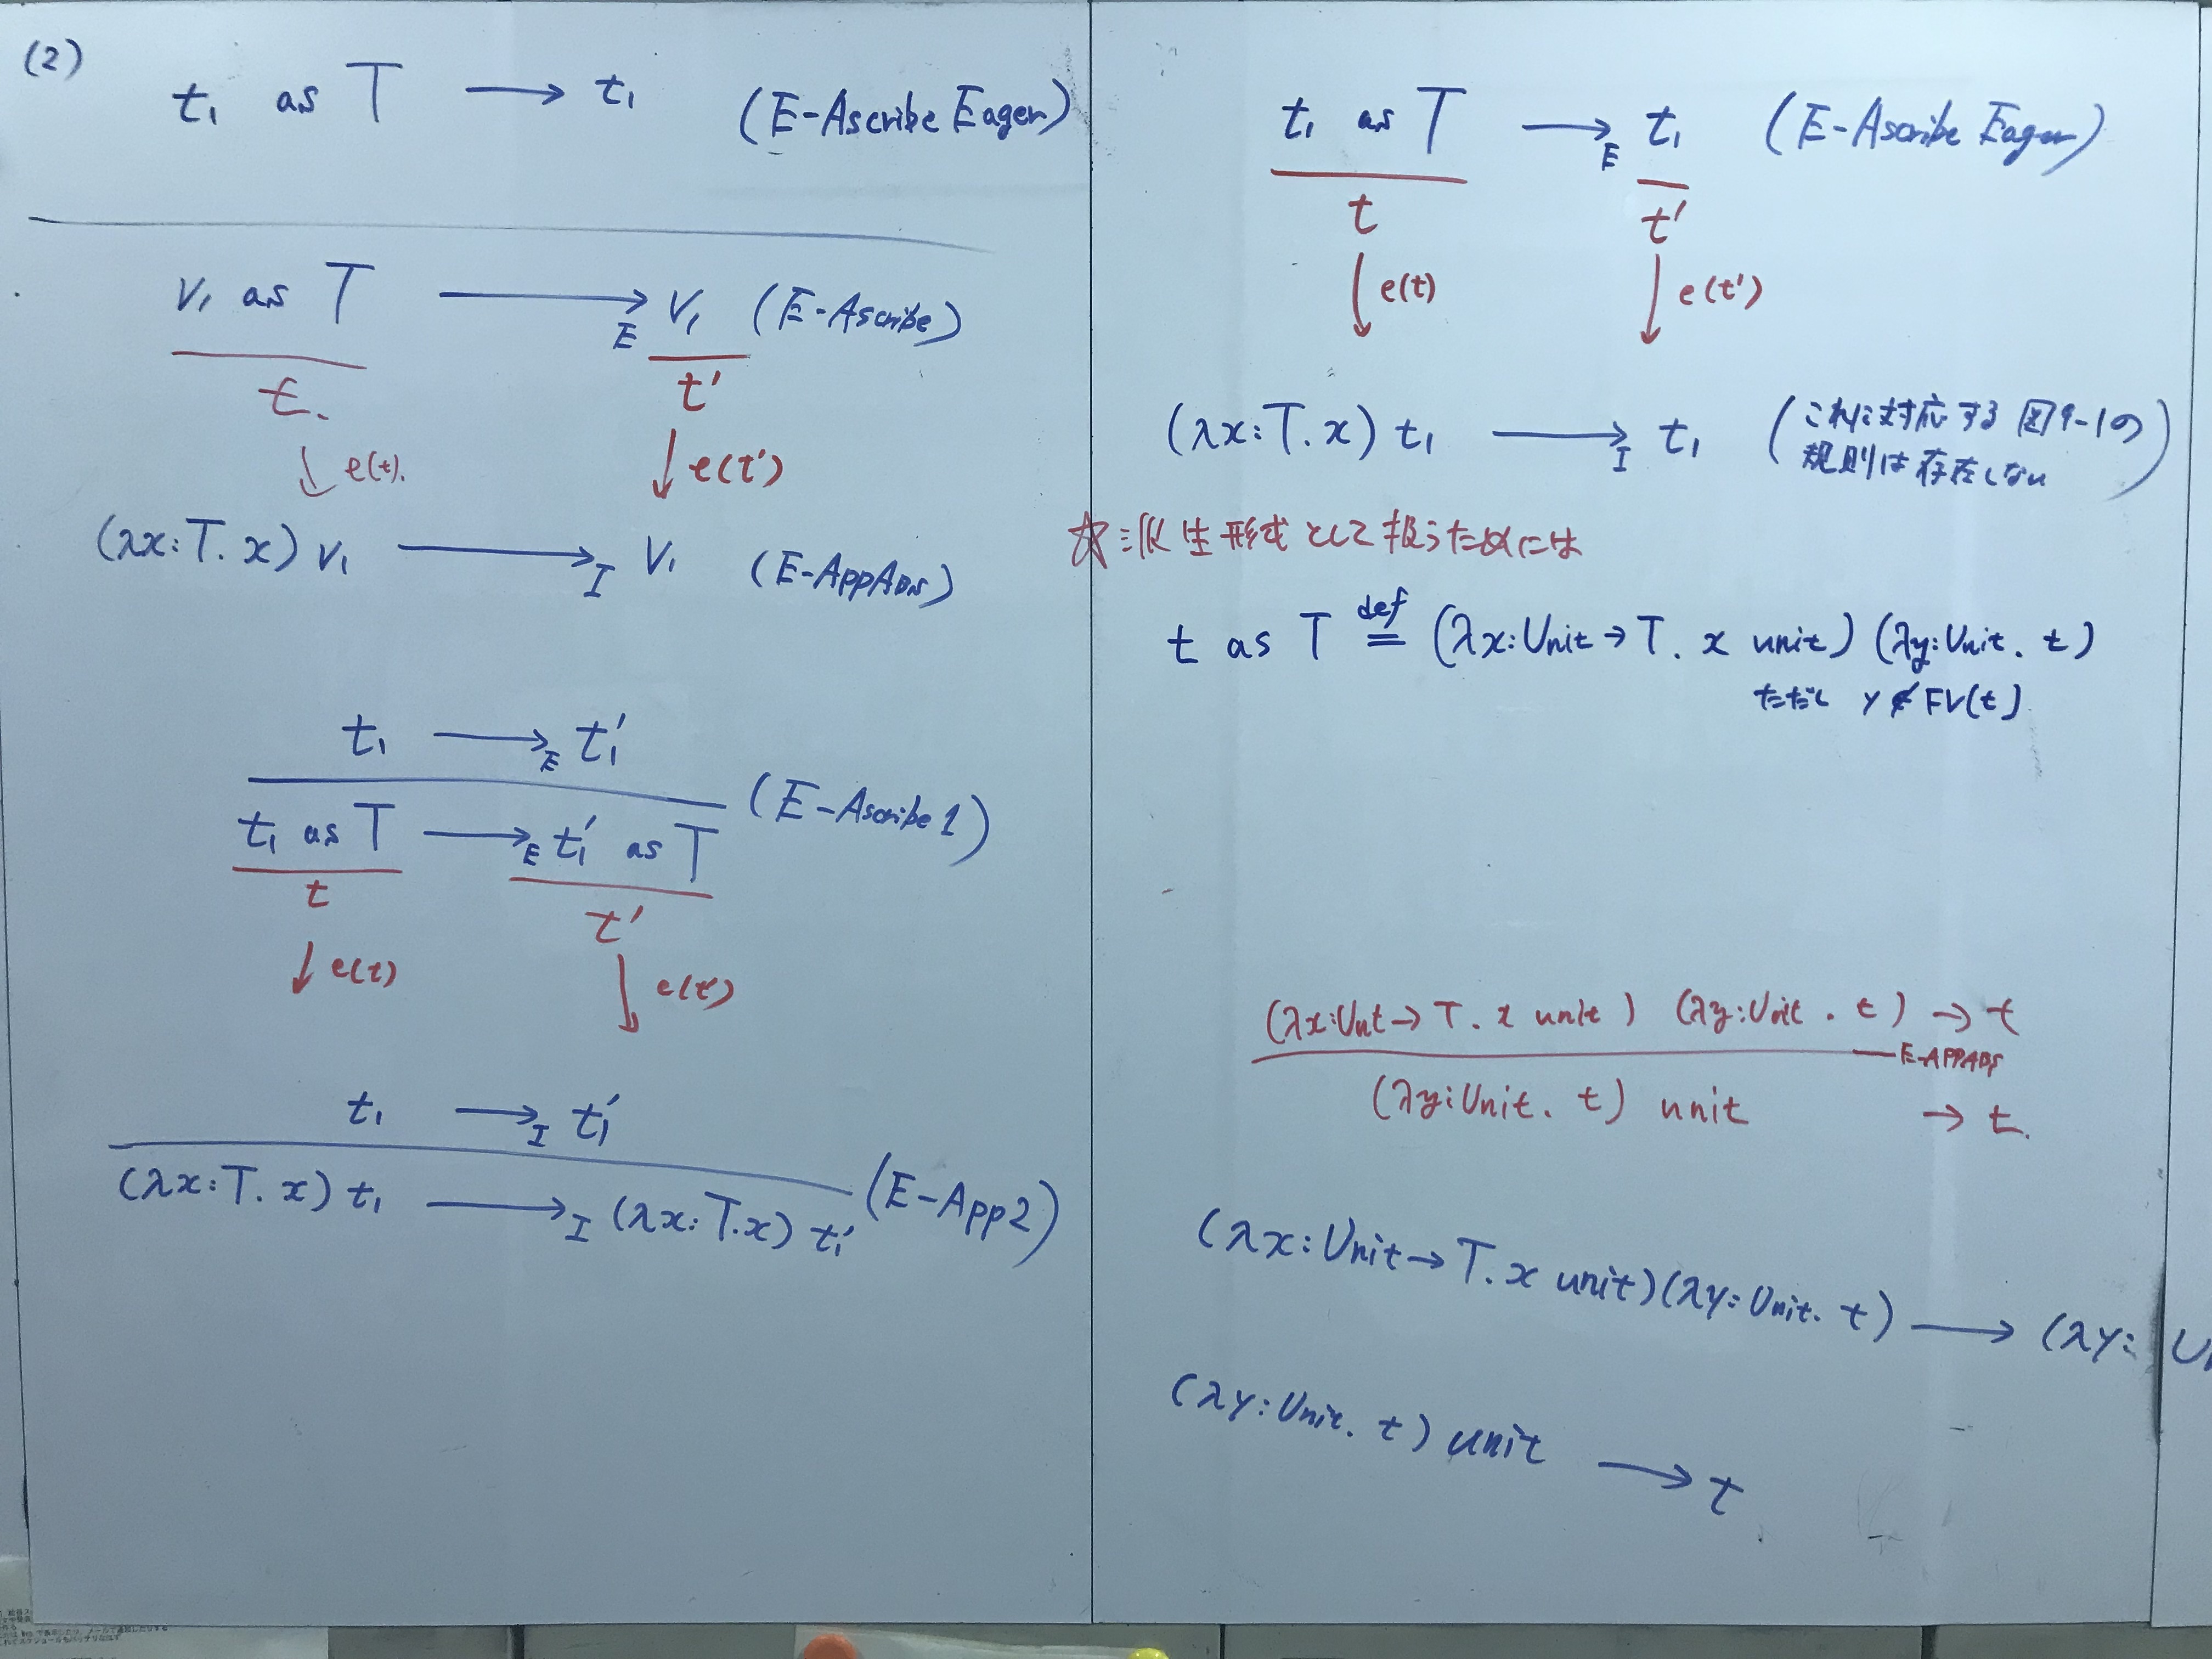 (2)
t₁ as T ⟶ t₁ (E-Ascribe Eager)
v₁ as T ⟶E v₁ (E-Ascribe)
t. t'
e(t). e(t')
(λx:T. x) v₁ ⟶I v₁ (E-AppAbs)
t₁ ⟶E t₁'
t₁ as T ⟶E t₁' as T (E-Ascribe 1)
t t'
e(t) e(t')
t₁ ⟶I t₁'
(λx:T. x) t₁ ⟶I (λx:T.x) t₁' (E-App2)
t₁ as T ⟶E t₁ (E-Ascribe Eager)
t t'
e(t) e(t')
(λx:T. x) t₁ ⟶I t₁ (これに対応する図9-1の
規則は存在しない)
☆派生形式として扱うためには
t as T def= (λx:Unit→T. x unit) (λy:Unit. t)
ただし y∉FV(t)
(λx:Unt→T. x unit) (λy:Unit. t) → t
E-APPABS
(λy:Unit. t) unit → t.
(λx:Unit→T. x unit)(λy:Unit. t) ⟶ (λy:
(λy:Unit. t) unit ⟶ t